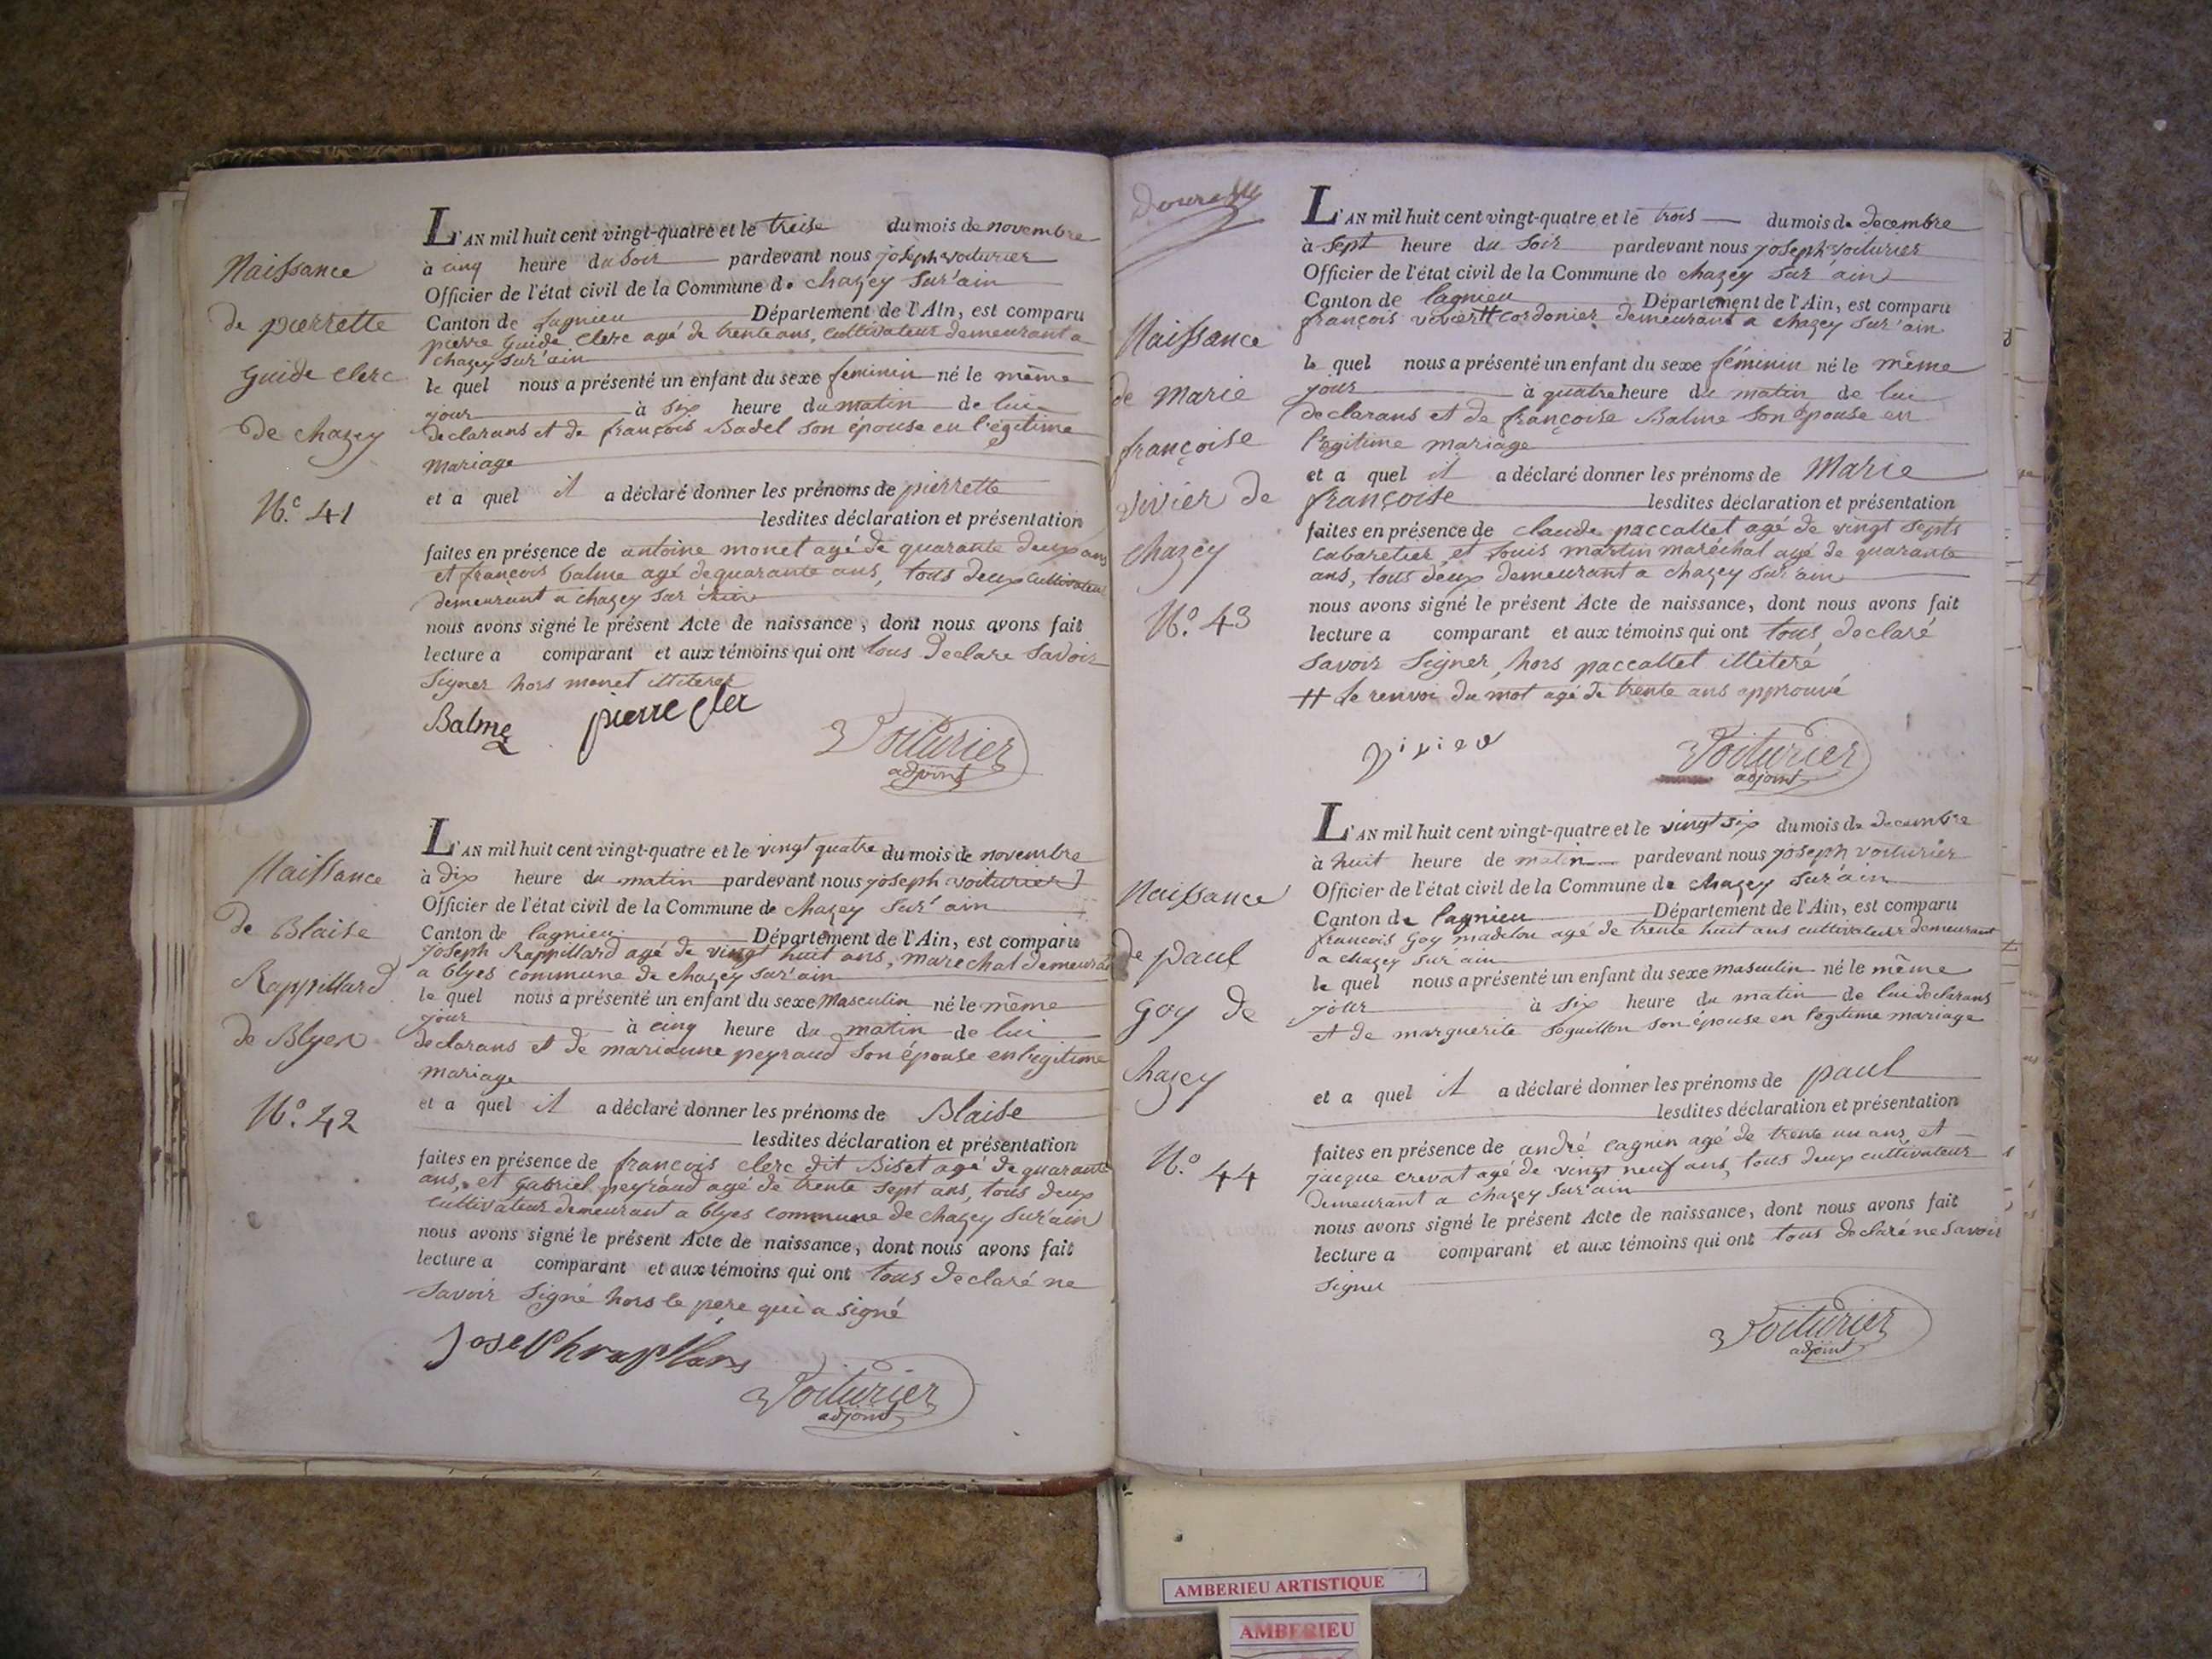 Naissance
de pierrette
Guide Clerc
de chazey
N.º 41
L'AN mil huit cent vingt-quatre et le treise du mois de novembre
à cinq heure du soir pardevant nous joseph voiturier
Officier de l'état civil de la Commune de chazey sur'ain
Canton de lagnieu Département de l'Ain, est comparu
pierre Guide Clerc agé de trente ans, cultivateur demeurant a
chazey sur'ain
le quel nous a présenté un enfant du sexe feminin né le même
jour à six heure du matin de lui
declarans et de françois Badel son épouse en l'égitime
mariage
et a quel il a déclaré donner les prénoms de pierrette
lesdites déclaration et présentation
faites en présence de antoine monet agé de quarante deux ans
et françois balme agé de quarante ans, tous deux cultivateur
demeurant a chazey sur ain
nous avons signé le présent Acte de naissance, dont nous avons fait
lecture a comparant et aux témoins qui ont tous declare savoir
signer hors monet illiteré
Balme pierre cler Voiturier
adjoint
Naissance
de Blaise
Rappillard
de Blyes
N.º 42
L'AN mil huit cent vingt-quatre et le vingt quatre du mois de novembre
à dix heure du matin pardevant nous joseph voiturier
Officier de l'état civil de la Commune de chazey sur'ain
Canton de lagnieu Département de l'Ain, est comparu
joseph Rappillard agé de vingt huit ans, marechal demeurant
a blyes commune de chazey sur'ain
le quel nous a présenté un enfant du sexe Masculin né le même
jour à cinq heure du matin de lui
declarans et de marianne peyraud son épouse en l'egitime
mariage
et a quel il a déclaré donner les prénoms de Blaise
lesdites déclaration et présentation
faites en présence de francois clerc dit Biset agé de quarante
ans, et Gabriel peyraud agé de trente sept ans, tous deux
cultivateur demeurant a blyes commune de chazey sur'ain
nous avons signé le présent Acte de naissance, dont nous avons fait
lecture a comparant et aux témoins qui ont tous declaré ne
savoir signé hors le pere qui a signé
Voiturier
adjoint
Naissance
de Marie
françoise
vivier de
chazey
N.º 43
L'AN mil huit cent vingt-quatre et le trois du mois de decembre
à sept heure du soir pardevant nous joseph voiturier
Officier de l'état civil de la Commune de chazey sur'ain
Canton de lagnieu Département de l'Ain, est comparu
françois vivier # cordonier demeurant a chazey sur'ain
le quel nous a présenté un enfant du sexe féminin né le même
jour à quatre heure du matin de lui
declarans et de françoise Balme son épouse en
l'egitime mariage
et a quel il a déclaré donner les prénoms de Marie
françoise lesdites déclaration et présentation
faites en présence de claude paccallet agé de vingt septs
cabaretier et Louis martin maréchal agé de quarante
ans, tous deux demeurant a chazey sur'ain
nous avons signé le présent Acte de naissance, dont nous avons fait
lecture a comparant et aux témoins qui ont tous declaré
savoir signer, hors paccallet illiteré
# le renvoi du mot agé de trente ans approuvé
Voiturier
adjoint
Naissance
de paul
goy de
chazey
N.º 44
L'AN mil huit cent vingt-quatre et le vingt six du mois de decembre
à huit heure de matin pardevant nous joseph voiturier
Officier de l'état civil de la Commune de chazey sur'ain
Canton de lagnieu Département de l'Ain, est comparu
francois Goy madelon agé de trente huit ans cultivateur demeurant
a chazey sur ain
le quel nous a présenté un enfant du sexe masculin né le même
jour à six heure du matin de lui declarans
et de marguerite seguillon son épouse en l'egitime mariage
et a quel il a déclaré donner les prénoms de paul
lesdites déclaration et présentation
faites en présence de andré cagnin agé de trente un ans et
jacque crevat agé de vingt neuf ans, tous deux cultivateur
demeurant a chazey sur'ain
nous avons signé le présent Acte de naissance, dont nous avons fait
lecture a comparant et aux témoins qui ont tous declaré ne savoir
signer
Voiturier
adjoint
AMBERIEU ARTISTIQUE
AMBERIEU